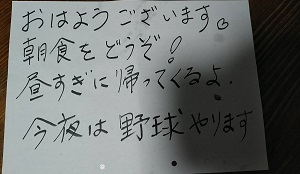 おはようございます。
朝食をどうぞ!
昼すぎに帰ってくるよ.
今夜は野球やります